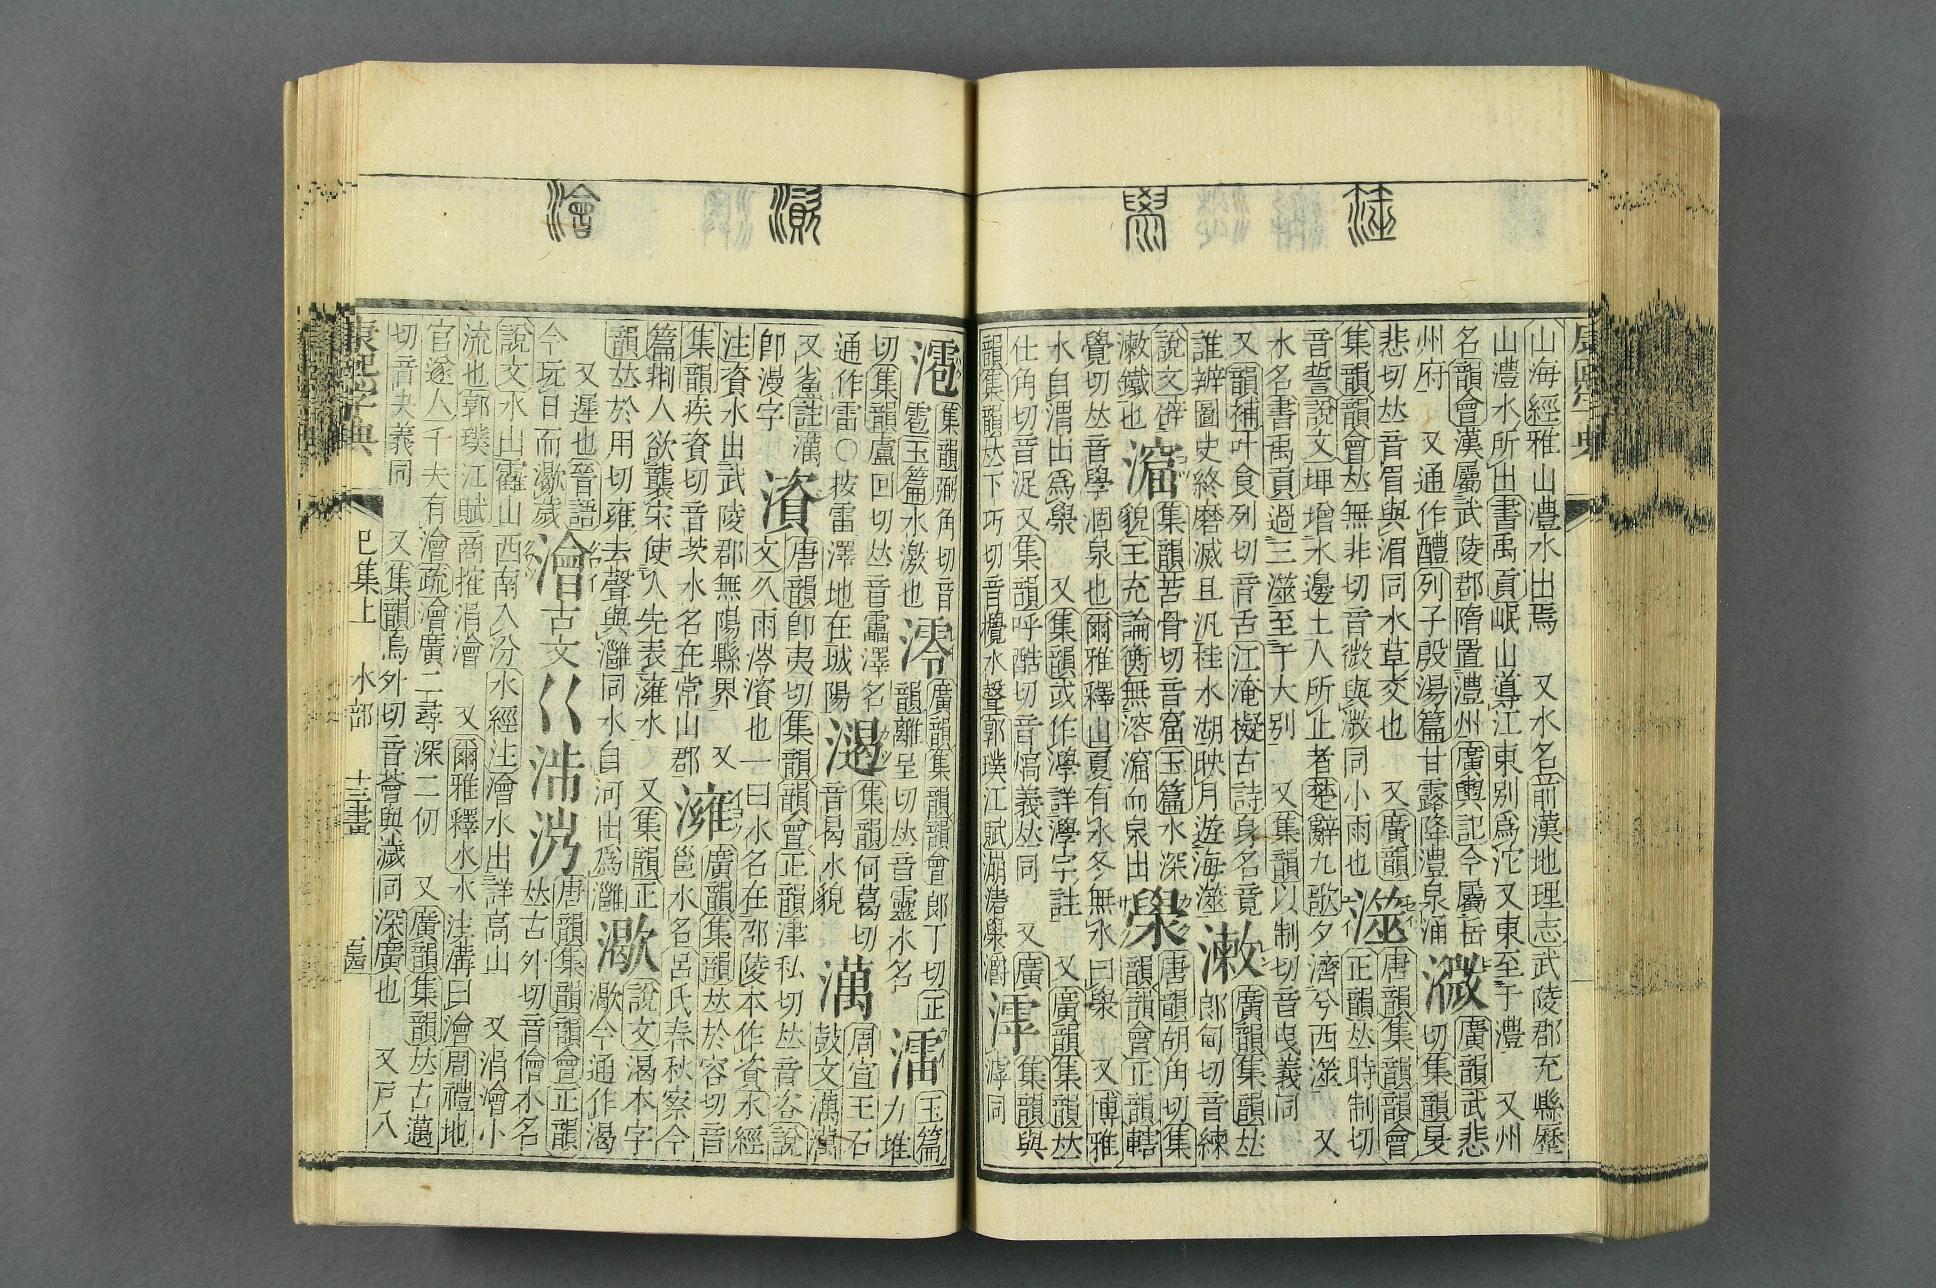 澮
澂
澩
澨
康熙字典
山海經雅山澧水出焉　又水名前漢地理志武陵郡充縣歷
山澧水所出書禹貢岷山導江東別爲沱又東至于澧　又州
名韻會漢屬武陵郡隋置澧州廣輿記今屬岳
州府　又通作醴列子殷湯篇甘露降澧泉涌
溦
廣韻武悲
切集韻旻
悲切𠀤音眉與湄同水草交也　又廣韻
集韻韻會𠀤無非切音微與溦同小雨也
澨
唐韻集韻韻會
正韻𠀤時制切
音誓說文埤增水邊土人所止者楚辭九歌夕濟兮西澨　又
水名書禹貢過三澨至于大別　又集韻以制切音曳義同
又韻補叶食列切音舌江淹擬古詩身名竟
誰辨圖史終磨滅且汎桂水湖映月遊海澨
𣿊
廣韻集韻𠀤
郎甸切音練
說文辟
𣿊鐵也
㵠
集韻苦骨切音窟玉篇水深
貌王充論衡無溶㵠而泉出
澩
唐韻胡角切集
韻韻會正韻轄
覺切𠀤音學涸泉也爾雅釋山夏有水冬無水曰澩　又博雅
水自渭出爲澩　又集韻或作㶅詳㶅字註　又廣韻集韻𠀤
仕角切音浞又集韻呼酷切音熇義𠀤同　又廣
韻集韻𠀤下巧切音攪水聲郭璞江賦漰澩灂
集韻與
滹同
集韻弼角切音
雹玉篇水激也
澪
廣韻集韻韻會郎丁切正
韻離呈切𠀤音靈水名
㵢
玉篇
力堆
切集韻盧回切𠀤音靁澤名
通作雷○按雷澤地在城陽
集韻何葛切
音曷水貌
澫
周宣王石
鼓文澫澫
又鯊註澫
卽漫字
澬
唐韻卽夷切集韻韻會正韻津私切𠀤音咨說
文久雨涔澬也一曰水名在邵陵本作資水經
注資水出武陵郡無陽縣界　又
集韻疾資切音茨水名在常山郡
澭
廣韻集韻𠀤於容切音
邕水名呂氏春秋察今
篇荆人欲襲宋使人先表澭水　又集韻正
韻𠀤於用切雍去聲與灉同水自河出爲灉
㵣
說文渴本字
㵣今通作渴
又遲也晉語
今忨日而㵣歲
澮
古文巜㳈
唐韻集韻韻會正韻
𠀤古外切音儈水名
說文水出靃山西南入汾水經注澮水出詳高山　又涓澮小
流也郭璞江賦商搉涓澮　又爾雅釋水水注溝曰澮周禮地
官遂人千夫有澮疏澮廣二尋深二仞　又廣韻集韻𠀤古邁
切音夬義同　又集韻烏外切音薈與濊同深廣也　又戸八
康熙字典
巳集上　水部　十三畫